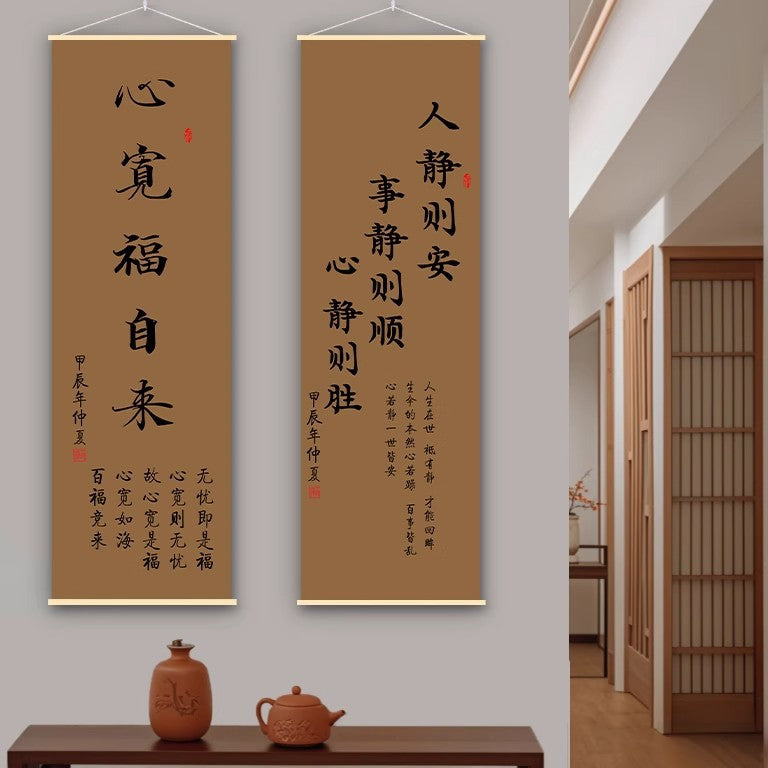 心寬福自来
甲辰年仲夏
无忧即是福
心宽则无忧
故心宽是福
心宽如海
百福竞来
人静则安
事静则顺
心静则胜
甲辰年仲夏
人生在世 祗有静 才能回
生命的本然心若躁 百事皆乱
心若静一世皆安